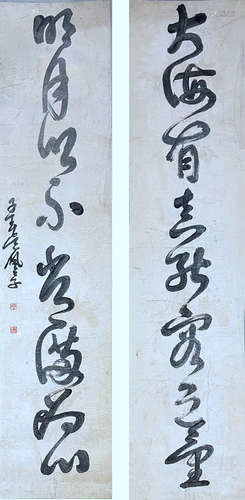 大海有真能容之量
明月以不常满為心